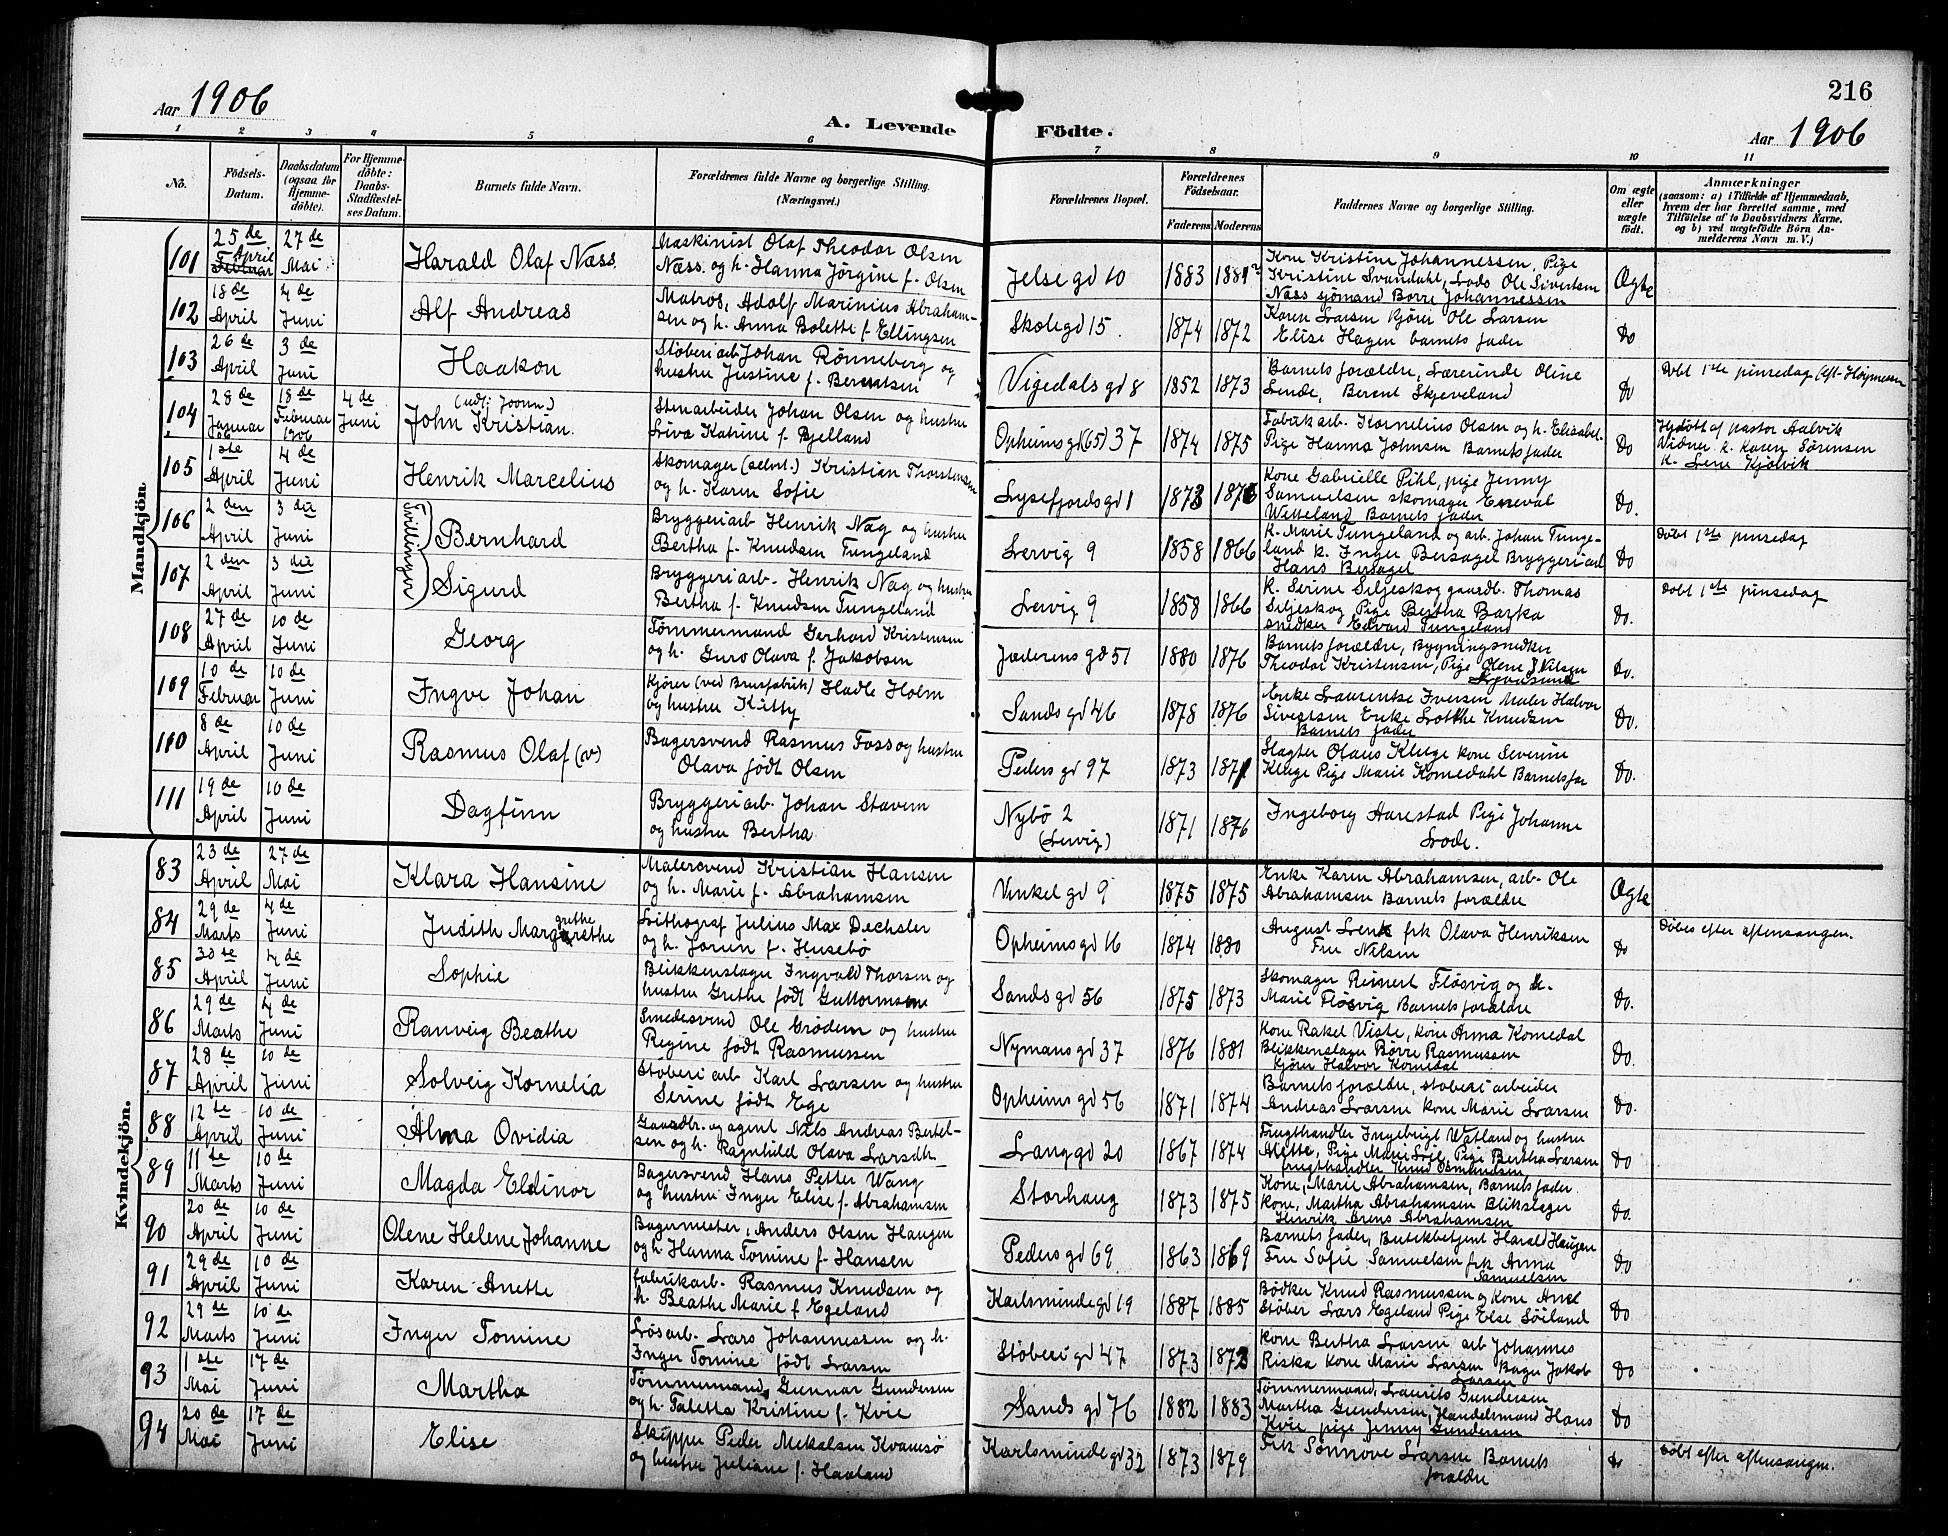 216
Aar 1906
A. Levende Födte.
Aar 1906
1 2 3 4 5 6 7 8 9 10 11
No.
Födsels-Datum.
Daabsdatum (ogsaa for Hjemme-döbte).
For Hjemme-döbte: Daabs-Stadfæstel-ses Datum.
Barnets fulde Navn.
Forældrenes fulde Navne og borgerlige Stilling. (Næringsvei.)
Forældrenes Bopæl.
Forældrenes Födselsaar.
Faderens Moderens
Faddernes Navne og borgerlige Stilling.
Om ægte eller uægte födt.
Anmærkninger
(saasom: a) i Tilfælde af Hjemmedaab, hvem der har forrettet samme, med Tilföielse af to Daabsvidners Navne, og b) ved uægtefödte Börn An-melderens Navn m. V.)
Mandkjön
101 25de April 27de Mai Harald Olaf Næss. Maskinist Olaf Theodor Olsen
Næss. og h. Hanna Jörgine f. Olsen Jelse gd 10 1883 1881 Kone Kristine Johannessen, Pige
Kristine Svandahl, Lods Ole Sivertsen
Næss sjömand Borre Johannessen Ægte
102 18de April 4de Juni Alf Andreas Matros, Adolf Marinius Abraham-
sen og h. Anna Bolette f. Ellingsen Skolegd 15. 1874 1872 Karen Larsen kjörer Ole Larsen
Elise Hagen barnets fader Do
103 26de April 3de Juni Haakon Stöberiarb Johan Rönneberg og
hustru Justine f. Berentsen Vigedals gd 8 1852 1873 Barnets forældre, Lærerinde Oline
Lende, Berent Skjeveland Do Döbt 1ste pinsedag
104 28de Januar 06 18de Februar 1906 4de Juni John Kristian. Stenarbeider Johan Olsen og hustru
Liva Katrine f. Bjelland Opheims gd (65) 37 1874 1875 Fabrikarb. Kornelius Olsen og h. Elisabet
Pige Hanna Johnsen Barnets fader Do Hjdöbt af pastor Aalvik
Vidner k. Karen Sørensen
k. Lene Kjölvik
105 1ste April 4de Juni Henrik Marcelius Skomager (selvst.) Kristian Thorstensen
og h. Karen Sofie Lysefjords gd 1 1873 Kone Gabrielle Pihl, pige Jenny
Samuelsen skomager Eneval
Wetteland Barnets fader Do.
Tvillinger
106 2den April 3die Juni Bernhard Bryggeriarb Henrik Nag og hustru
Bertha f. Knudsen Tungeland Lervig 9 1858 1866 k. Marie Tungeland og arb. Johan Tunge-
land k. Inger Bersagel Bryggeriarb
Hans Bersagel Do Döbt 1ste pinsedag
107 2den April 3die Juni Sigurd Bryggeriarb. Henrik Nag og hustru
Bertha f. Knudsen Tungeland Lervig 9 1858 1866 k. Serine Siljeskog gaardb. Thomas
Siljeskog Pige Bertha Barka
snedker Edvard Tungeland Do. Döbt 1ste pinsedag
108 27de April 10de Juni Georg Tömmermand Gerhard Kristensen
og h. Guro Olava f. Jakobsen Jæderens gd 51 1880 1876 Barnets forældre, Bygningsnedker
Theodor Kristensen, Pige Olene J Nilsen Do.
109 10de Februar 10de Juni Ingve Johan Kjörer (ved Brusfabrik) Hadle Holm
og hustru Kitty Sands gd 46 1878 1876 Enke Laurentse Iversen Maler Halvor
Sivertsen Enke Lotthe Knudsen
Barnets fader Do.
110 8de April 10de Juni Rasmus Olaf (v) Bagersvend Rasmus Foss og hustru
Olava födt Olsen Peders gd 97 1873 1871 Slagter Olaus Kluge kone Severine
Kluge Pige Marie Komedahl Barnets far Do.
111 19de April 10de Juni Dagfinn Bryggeriarb. Johan Stavem
og hustru Bertha Nybö 2
(Lervig) 1871 1876 Ingeborg Harestad Pige Johanne
Lode.
Kvindekjön.
83 23de April 27de Mai Klara Hansine Malersvend Kristian Hansen
og h. Marie f. Abrahamsen Vinkel gd 9 1875 1875 Enke Karen Abrahamsen, arb. Ole
Abrahamsen Barnets forældre Ægte
84 29de Marts 4de Juni Judith Margarethe grethe Lithograf Julius Max Dechsler
og h. Jorun f. Husebö Opheims gd 16 1874 1880 August Lenk frk Olava Henriksen
Fru Nilsen Do Döbes efter aftensangen.
85 30te April 4de Juni Sophie Blikkenslager Ingvald Thorsen og
hustru Grethe födt Guttormsen Sands gd 56 1875 1873 Skomager Reinert Flösvig og h.
Marie Flösvig Barnets forældre Do.
86 29de Marts 4de Juni Ranveig Beathe Smedesvend Ole Grödem og hustru
Regine födt Rasmussen Nymans gd 37 1876 1881 Kone Rakel Viste, kone Anna Komedal
Blikkenslager Börre Rasmussen
Kjörer Halvor Komedal Do.
87 28de April 10de Juni Solveig Kornelia Stöberiarb Karl Larsen og hustru
Serine födt Ege Opheims gd 56 1871 1874 Barnets forældre, stöberiarbeider
Andreas Larsen kone Marie Larsen Do.
88 12te April 10de Juni Alma Ovidia Gaardbr. og agent Nils Andreas Bertel-
sen og h. Ragnhild Olava Larsdtr. Lang gd 20 1867 1874 Frugthandler Ingebrigt Watland og hustru
Alette, Pige Marie Pige Bertha Larsen
frugthandler Knud Osmundsen Do
89 11te Marts 10de Juni Magda Eldinor Bagersvend Hans Petter Wang
og hustru Inger Elise f. Abrahamsen Storhaug 1873 1875 Kone, Marie Abrahamsen, Barnets fader
kone, Martha Abrahamsen Blikslager
Henrik Arens Abrahamsen Do.
90 20de April 10de Juni Olene Helene Johanne Bagermester, Anders Olsen Haugen
og h. Hanna Tomine f. Hansen Peders gd 69 1863 1869 Barnets fader, Butikbetjent Harald Haugen
Fru Sofie Samuelsen frk Anna
Samuelsen Do
91 29de April 10de Juni Karen Anette fabrikarb. Rasmus Knudsen og
h. Beathe Marie f Egeland Karlsminde gd 19 1887 1885 Bödker Knud Rasmussen og kone Anne
Stöber Lars Egeland Pige Else Söiland Do
92 29de Marts 10de Juni Inger Tomine Lösarb. Lars Johannessen og h.
Inger Tomine födt Larsen Stöberi gd 47 1873 1873 kone Bertha Larsen arb Johannes
Riska kone Marie Larsen Bager Jakob
Larsen Do
93 1ste Mai 17de Juni Martha Tömmermand Gunnar Gundersen
og h. Taletha Kristine f. Kvie Sands gd 76 1882 1883 Tömmermand, Laurits Gundersen
Martha Gundersen, Handelsmand Hans
Kvie, pige Jenny Gundersen Do
94 20de Mai 17de Juni Elise Skipper Peder Mikalsen Kvamsö
og hustru Juliane f. Haaland Karlsminde gd 32 1873 1879 Frk Sönnove Larsen Barnets
forældre Do Döbt efter aftensangen.